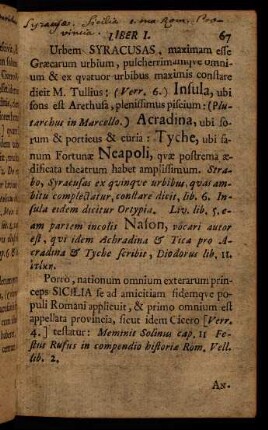 Syracusae. Sicilia prima Rom. Pro-
vincia.
LIBER I. 67
Urbem SYRACUSAS, maximam esse
Græcarum urbium, pulcherrimamque omni-
um & ex quatuor urbibus maximis constare
dicit M. Tullius: (Verr. 6.) Insula, ubi
fons est Arethusa, plenissimus piscium: (Plu-
tarchus in Marcello.) Acradina, ubi fo-
rum & porticus & curia: Tyche, ubi fa-
num Fortunæ Neapoli, quæ postrema æ-
dificata theatrum habet amplissimum. Stra-
bo, Syracusas ex quinque urbibus, quas am-
bitu complectatur, constare dicit, lib. 6. In-
sula eidem dicitur Ortygia. Liv. lib. 5. e-
am partem incolis Nason, vocari autor
est, qui idem Achradina & Tica pro A-
cradina & Tyche scribit, Diodorus lib. 11.
Porro, nationum omnium exterarum prin-
ceps SICILIA se ad amicitiam fidemque po-
puli Romani applicuit, & primo omnium est
appellata provincia, sicut idem Cicero [Verr.
4.] testatur: Meminit Solinus cap. 11 Fe-
stus Rufus in compendio historiæ Rom. Vell.
lib. 2.